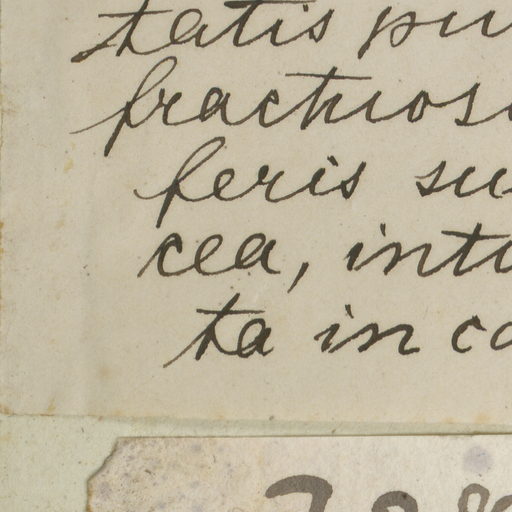 tatis pu
fractuos
feris su
cea, int
ta in co